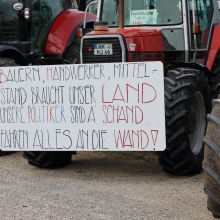 BAUERN, HANDWERKER, MITTEL-
STAND BRAUCHT UNSER LAND
UNSERE POLITIKER SIND A' SCHAND
FAHREN ALLES AN DIE WAND!